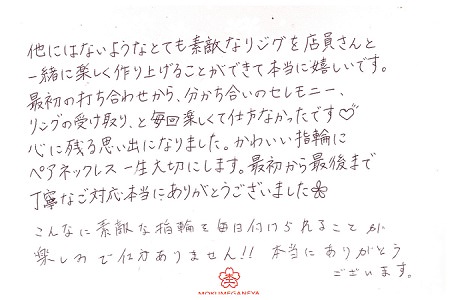 他にはないようなとても素敵なリングを店員さんと
一緒に楽しく作り上げることができて本当に嬉しいです。
最初の打ち合わせから、分かち合いのセレモニー、
リングの受け取り、と毎回楽しくて仕方なかったです♡
心に残る思い出になりました。かわいい指輪に
ペアネックレス一生大切にします。最初から最後まで
丁寧なご対応本当にありがとうございました
こんなに素敵な指輪を毎日付けられることが
楽しみで仕方ありません!! 本当にありがとう
ございます。
MOKUMEGANEYA